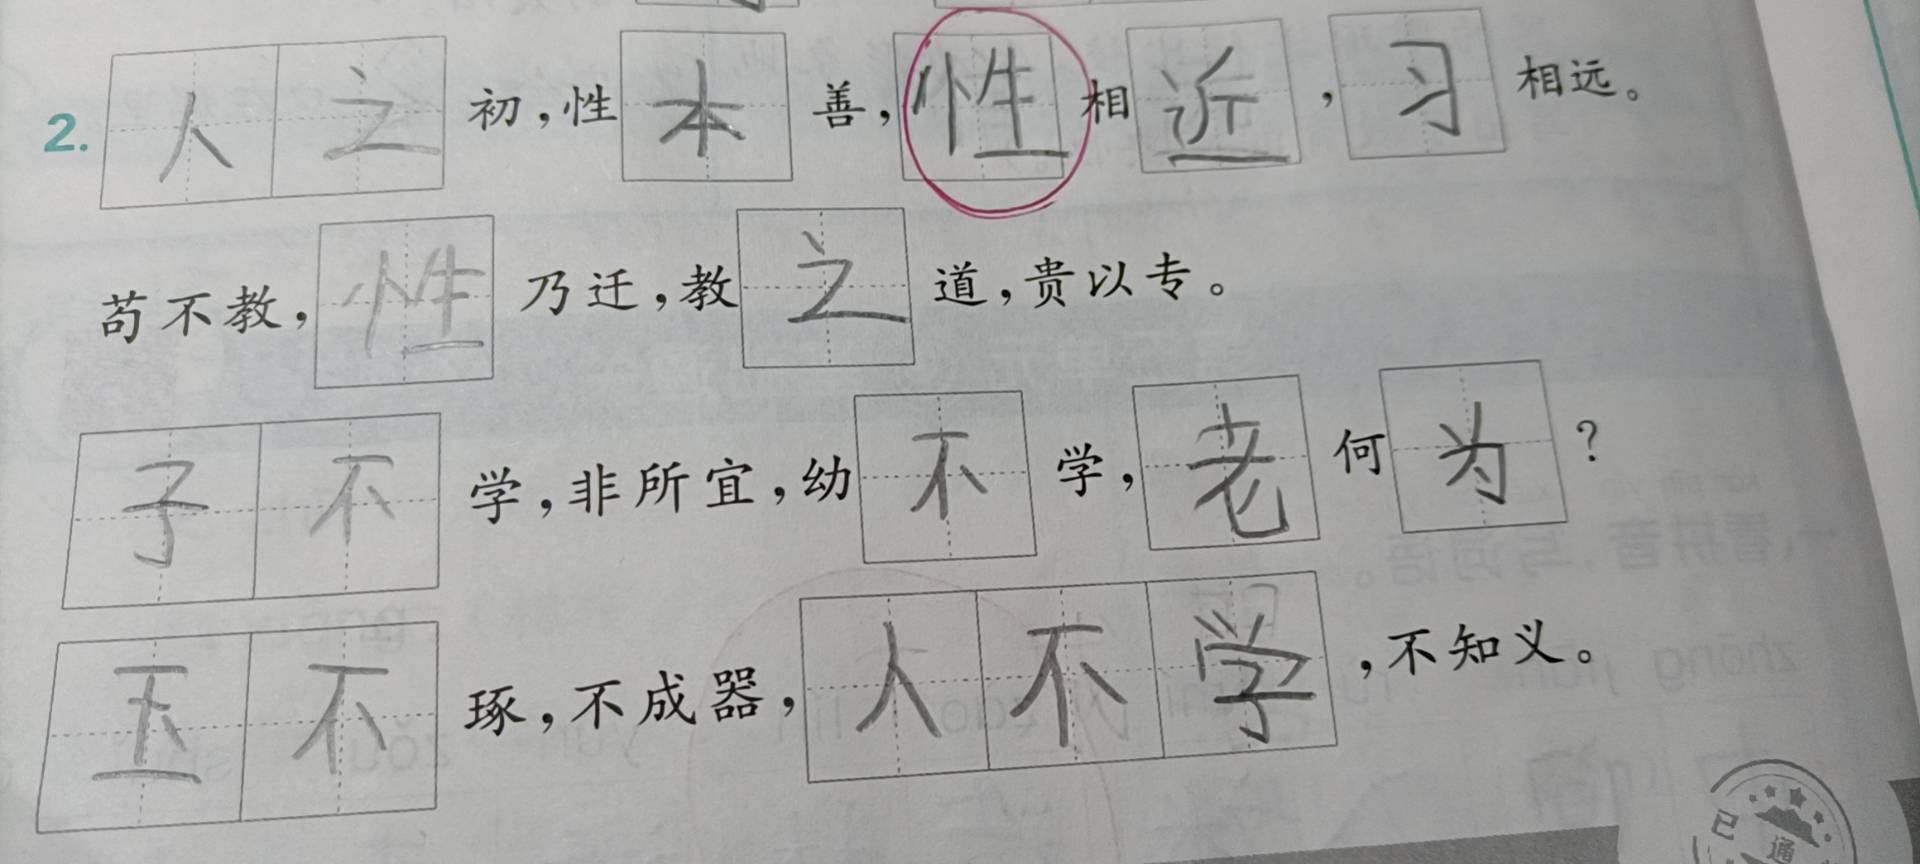 2. 人之初，性本善，性相近，习相远。
苟不教，性乃迁，教之道，贵以专。
子不学，非所宜，幼不学，老何为？
玉不琢，不成器，人不学，不知义。
通